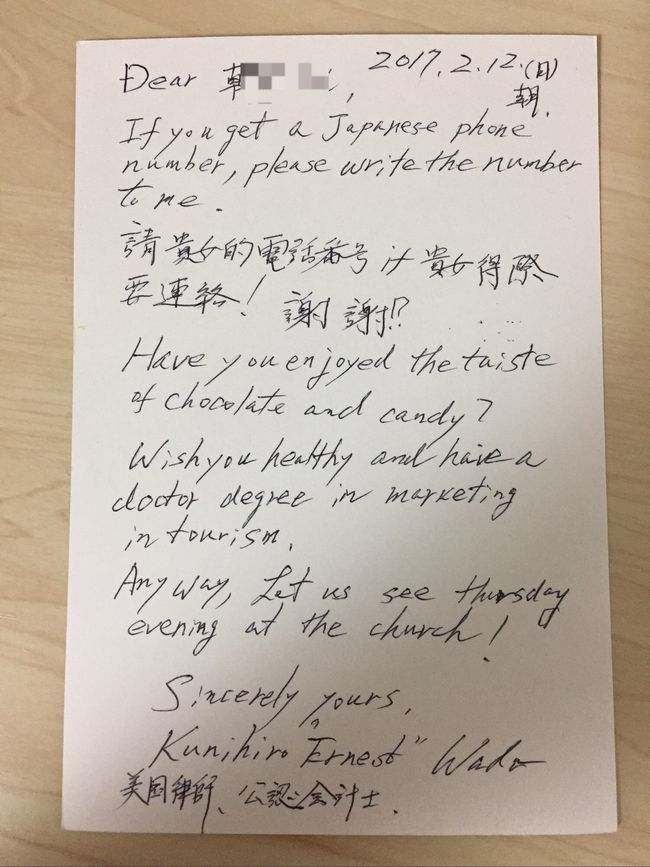 Dear 草 , 2017.2.12.(日)
朝.
If you get a Japanese phone
number, please write the number
to me.
請貴女的電話番号 if 貴女得際
要連絡! 謝謝!?
Have you enjoyed the taiste
of chocolate and candy?
Wish you healthy and have a
doctor degree in marketing
in tourism.
Any way, Let us see thursday
evening at the church!
Sincerely yours,
Kunihiro "Ernest" Wada
美国律師、公認会計士.